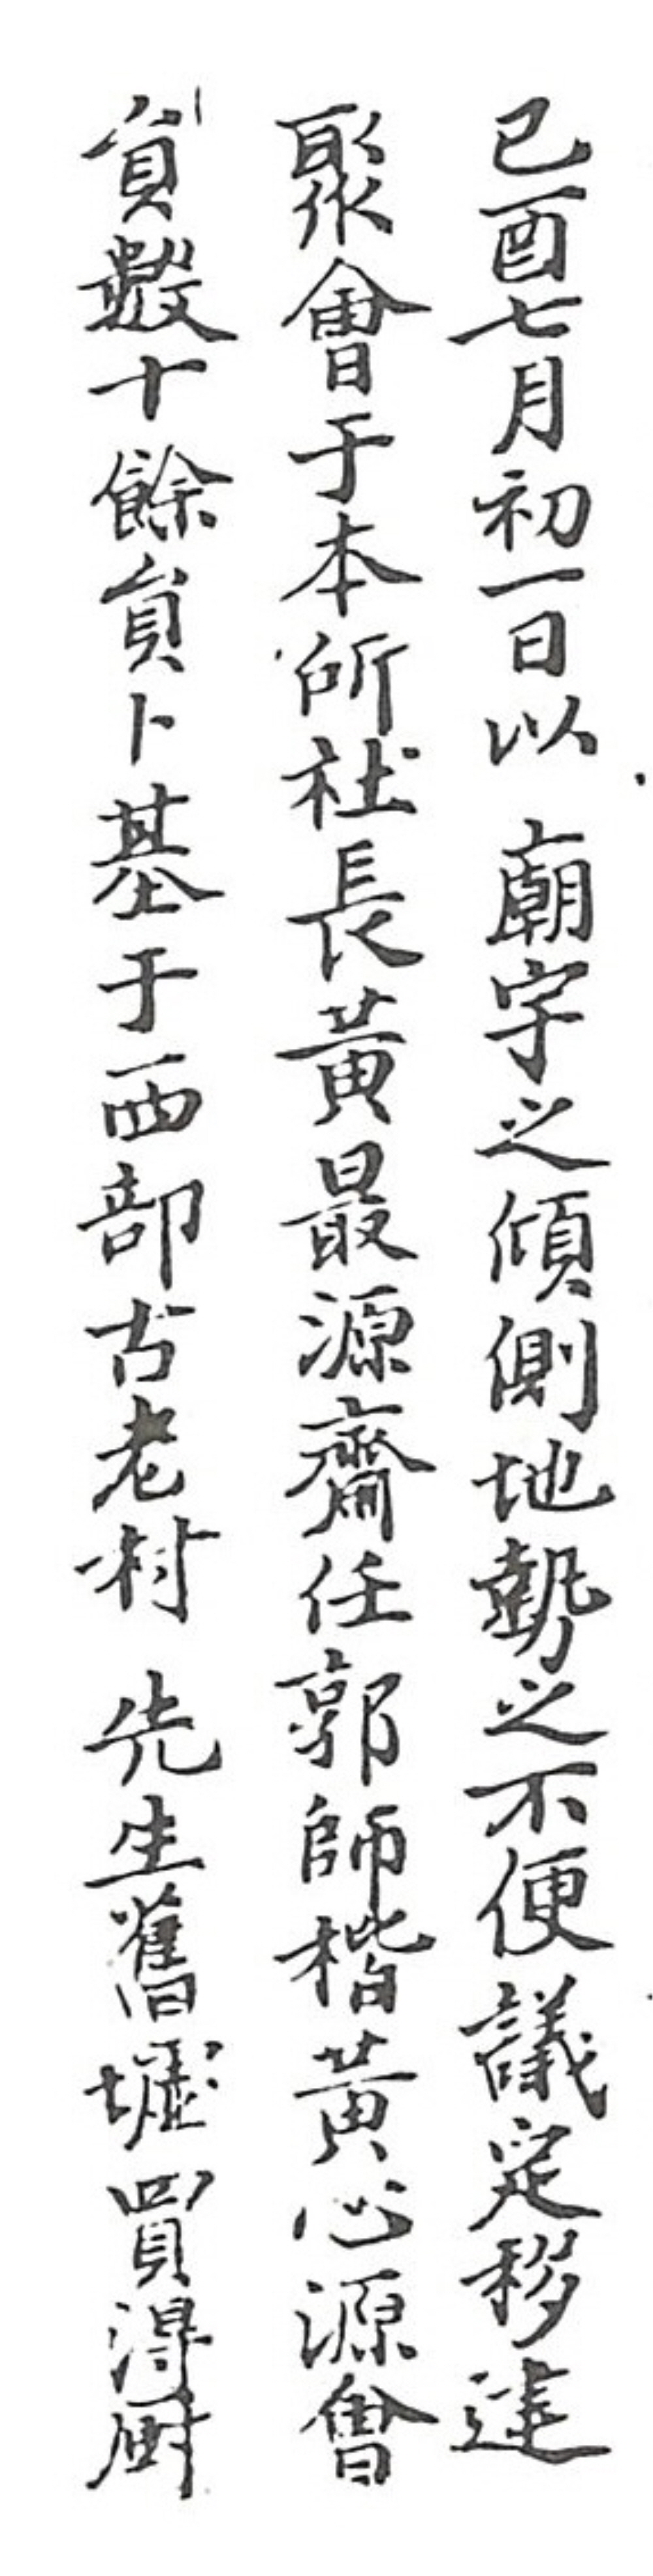 己酉七月初一日以 廟宇之傾側地勢之不便議定移建
聚會于本所社長黃最源齋任郭師楷黃心源會
員數十餘員卜基于西部古老村 先生舊墟買得廚